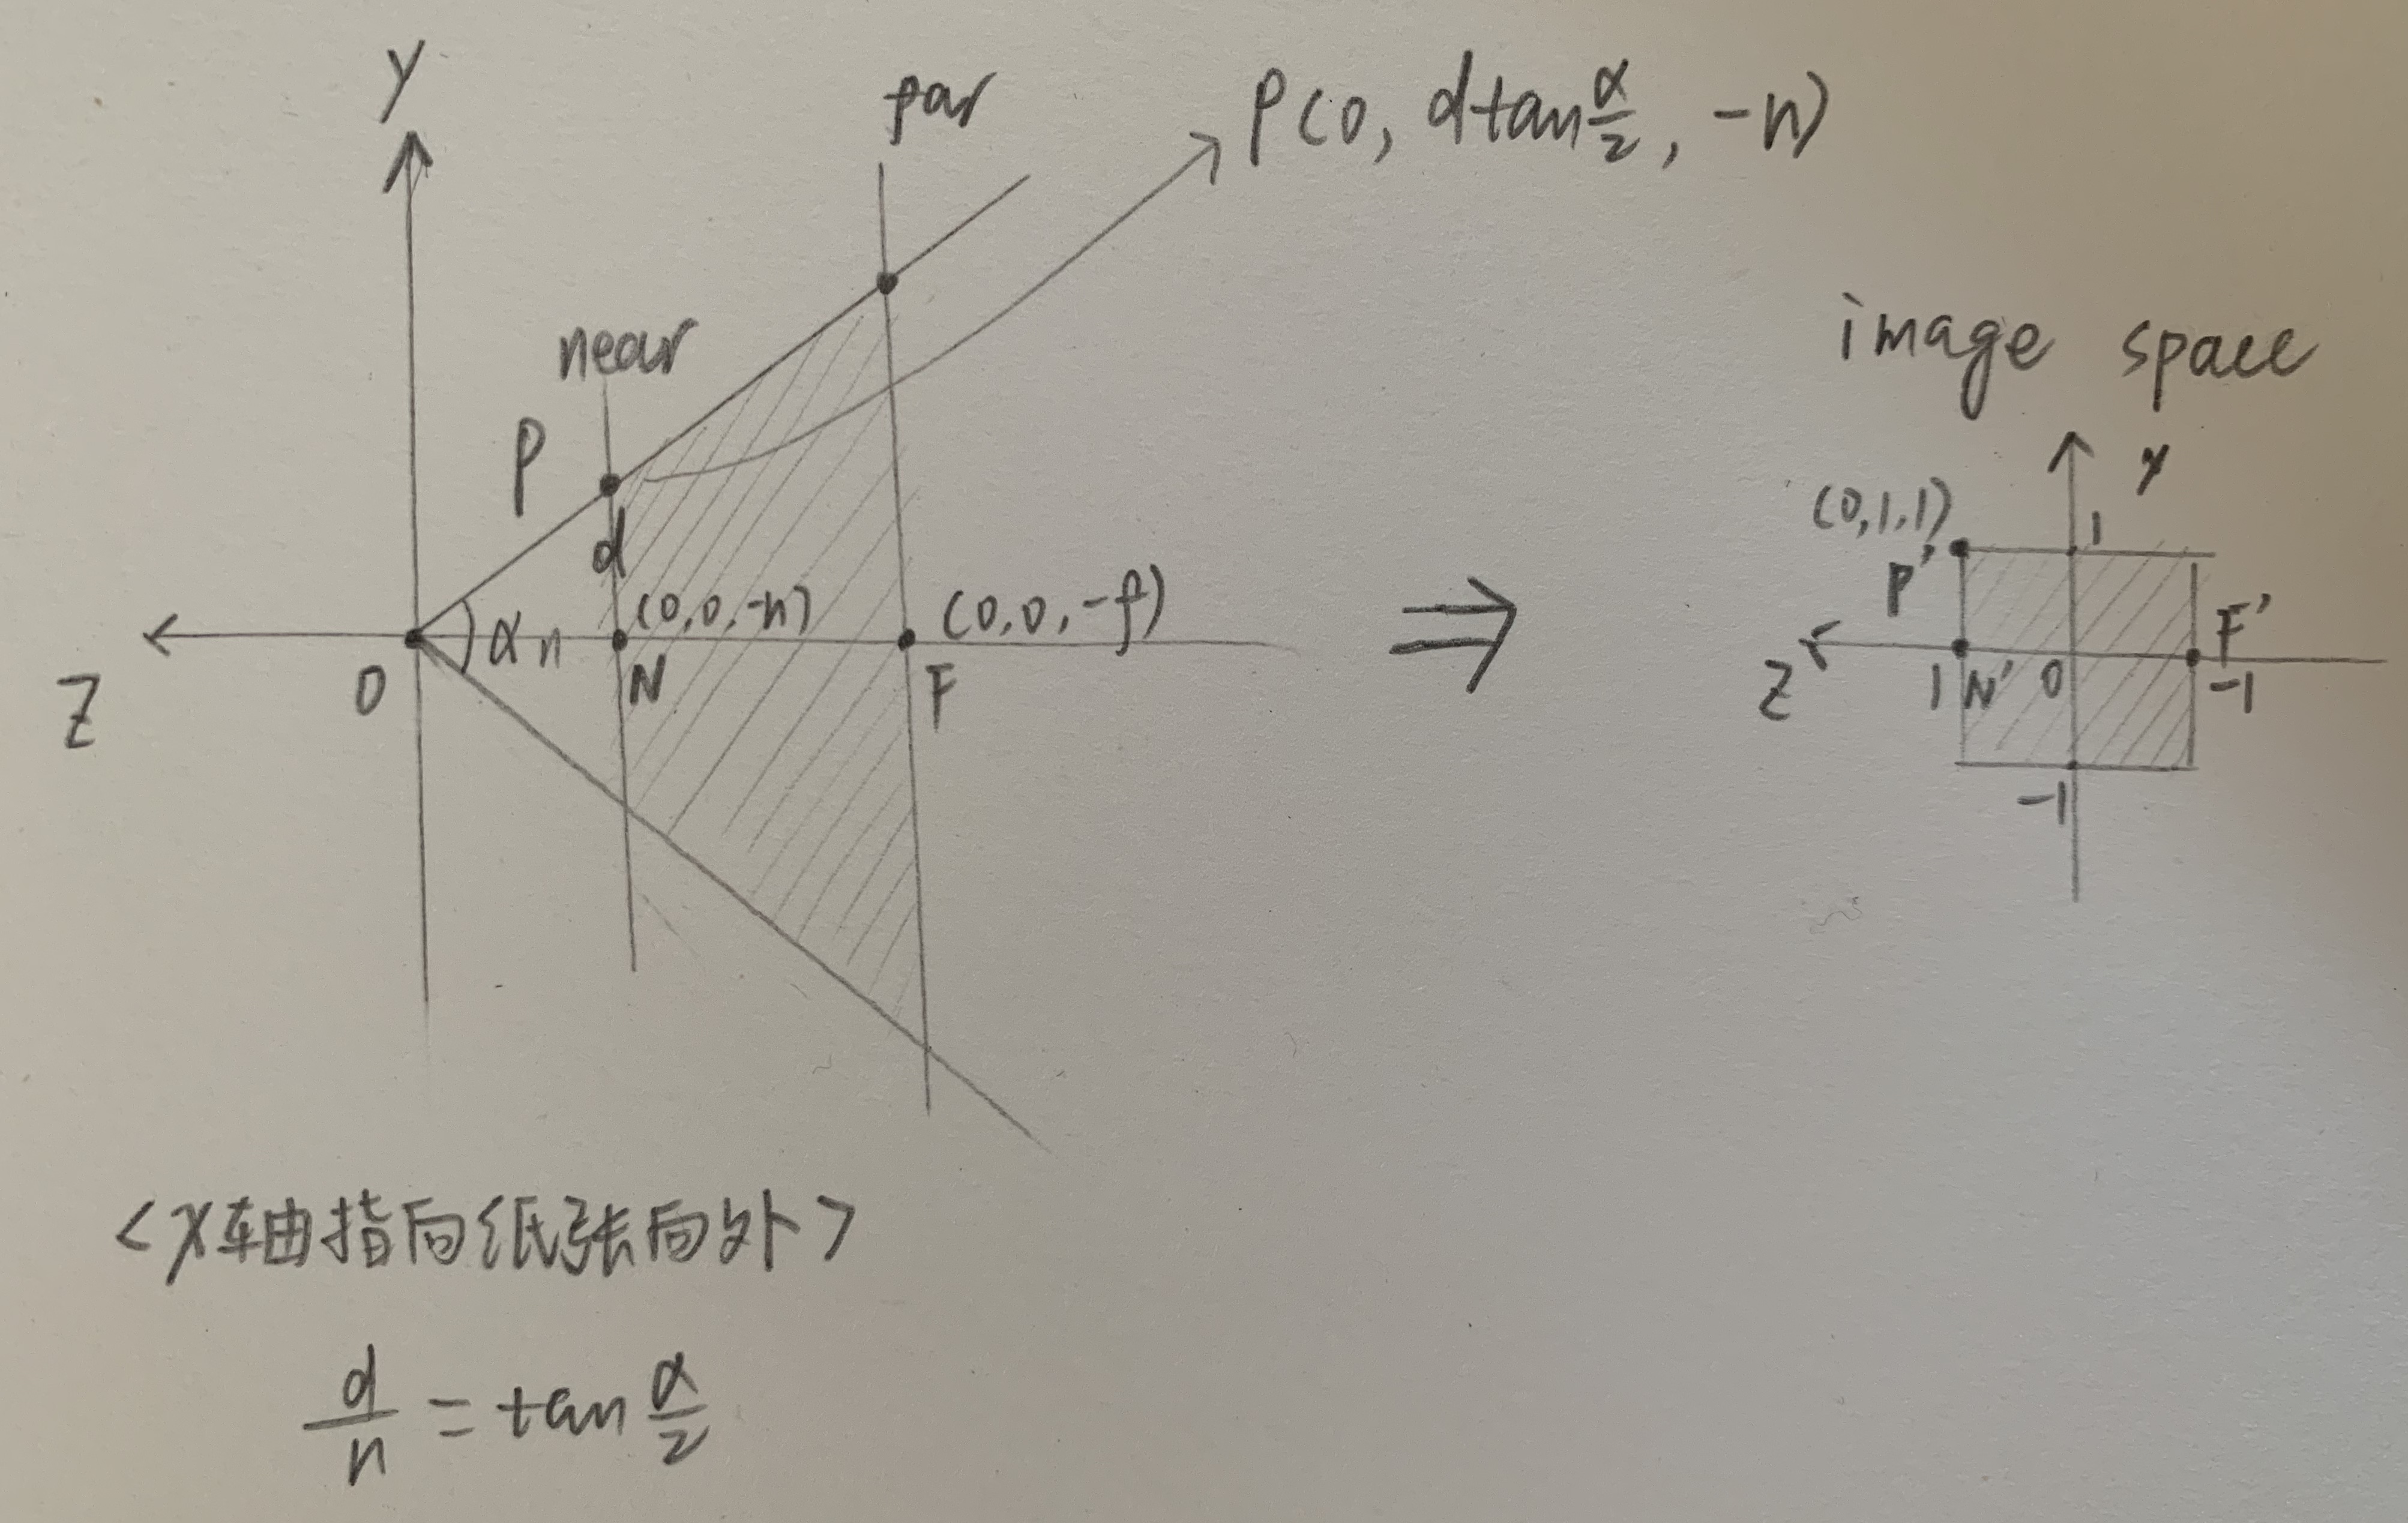 y
far
P(0, dtan α/2, -n)
near
P
d
(0,0,-n)
(0,0,-f)
α n
O
N
F
Z
⇒
image space
y
(0,1,1)
1
P'
F'
Z
1 N' 0
-1
-1
<x轴指向纸张向外>
d/n = tan α/2